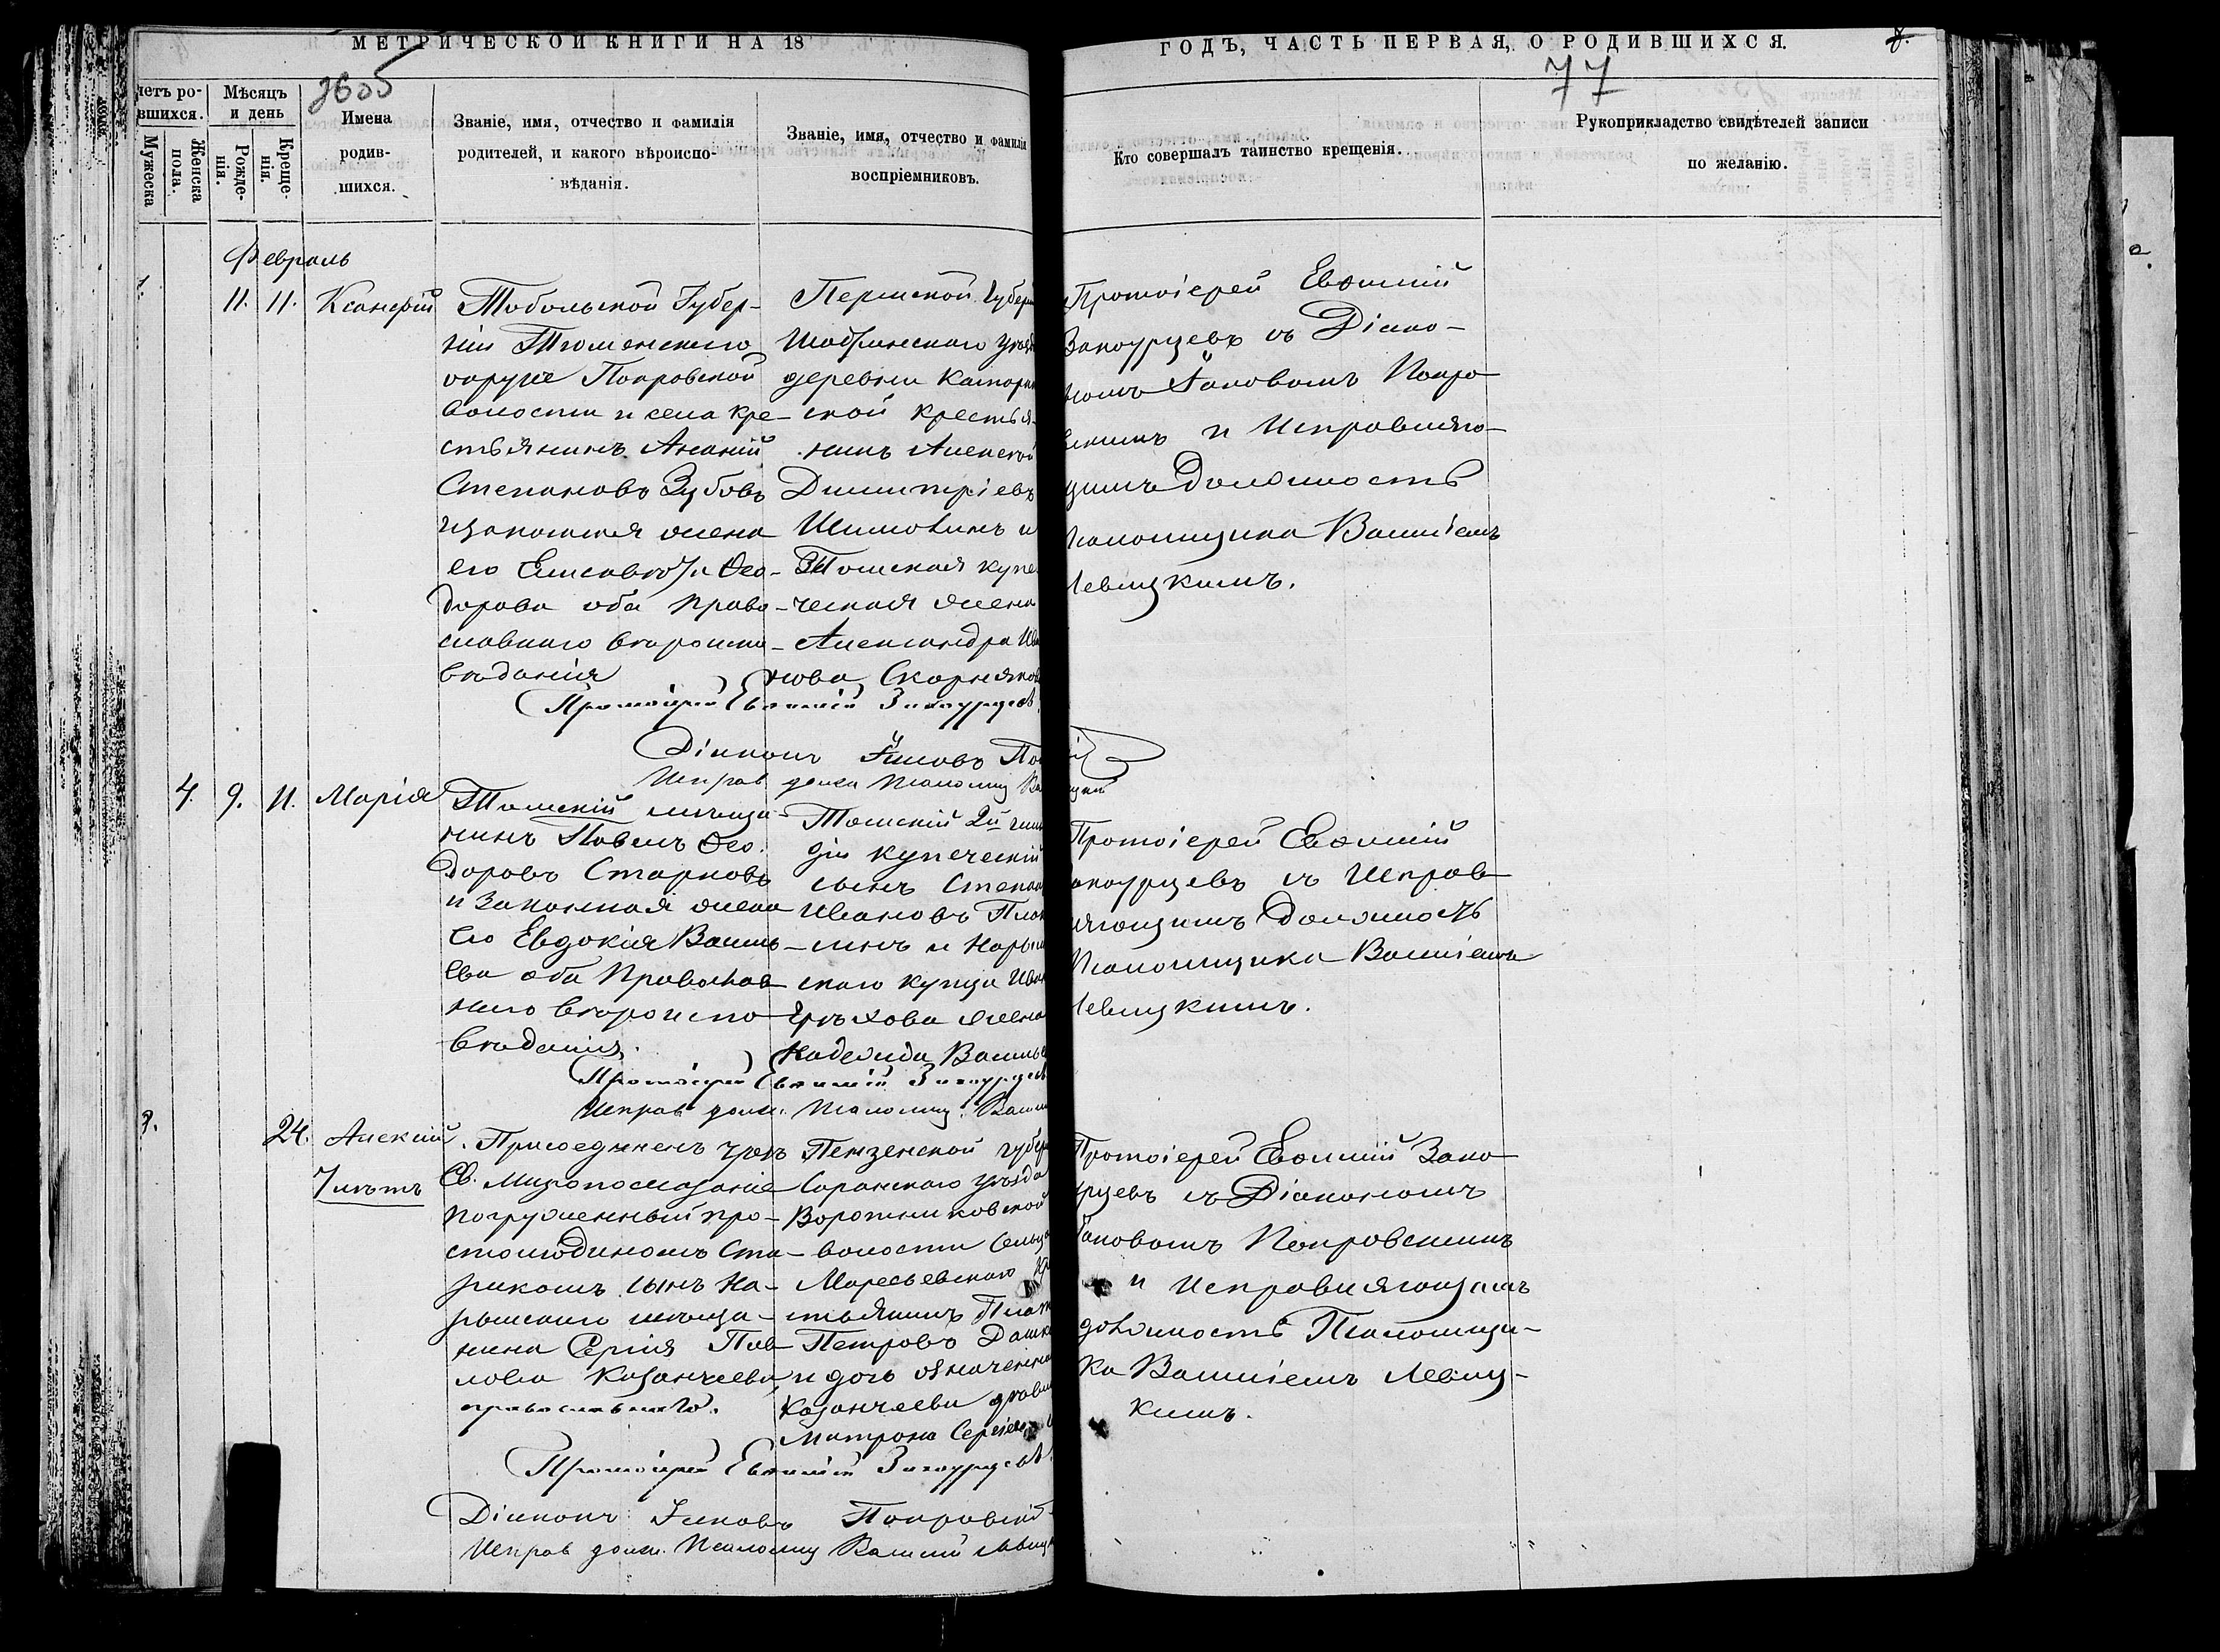 МЕТРИЧЕСКОЙ КНИГИ НА 18
ГОДЪ, ЧАСТЬ ПЕРВАЯ, О РОДИВШИХСЯ.
77
четъ ро-
вшихся.
Мужеска
Женска
пола.
Мѣсяцъ
и день
Рожде-
нія.
Креще-
нія.
Имена
родив-
шихся.
Званіе, имя, отчество и фамилія
родителей, и какого вѣроиспо-
вѣданія.
Званіе, имя, отчество и фамилія
воспріемниковъ.
Кто совершалъ таинство крещенія.
Рукоприкладство свидѣтелей записи
по желанію.
Февраль
11. 11. Ксанфій
Тобольской Губер-
ніи Тюменскаго
округа Покровской
волости и села кре-
стьянинъ Ананій
Степановъ Зубовъ
и законная жена
его Елисавета Ѳео-
дорова оба право-
славнаго вѣроиспо-
вѣданія
Пермской Губерн
Шадринскаго уѣзд
деревни
ской крестья-
нинъ Алексѣй
Димитріевъ
и
Томская купе
ческая жена
Александра Ива
нова Скорняков
Протоіерей Евѳимій
Закоурцевъ съ Діако-
номъ Іаковомъ Покро
вскимъ и Исправляю-
щимъ Должность
Псаломщика Василіемъ
Левицкимъ.
Протоіерей Евѳимій Закоурцевъ.
Діаконъ Іаковъ По
Исправ. долж. Псаломщ. Ва
4. 9. 11. Марія
Томскій мѣща-
нинъ Павелъ Ѳео-
доровъ Старковъ
и Законная жена
его Евдокія Василь-
ева оба Православ
наго вѣроиспо-
вѣданія.
Томскій 2й гиль
діи купеческій
сынъ Степан
Ивановъ
и Нарым
скаго купца Иван
Грѣхова жена
Надежда Василье
Протоіерей Евѳимій
Закоурцевъ съ Исправ
ляющимъ Должность
Псаломщика Василіемъ
Левицкимъ.
Протоіерей Евѳимій Закоурцевъ
Исправ. долж. Псаломщ. Васил
24. Алексій
7 лѣтъ
Присоединенъ чрезъ
Св. Миропомазаніе
погруженный про-
столюдиномъ Ста-
рикомъ сынъ На-
рымскаго мѣща-
нина Сергія Пав
лова Казанчеева
православнаго.
Пензенской губер
Саранскаго уѣзда
Воротниковской
волости Сельца
Маресьевскаго кре
стьянинъ Плат
Петровъ Дашк
и дочь означенна
Казанчеева дѣвиц
Матрона Сергіев
Протоіерей Евѳимій Зако
урцевъ съ Діакономъ
Іаковомъ Покровскимъ
и Исправляющимъ
должность Псаломщи-
ка Василіемъ Левиц-
кимъ.
Протоіерей Евѳимій Закоурцевъ.
Діаконъ Іаковъ Покровскій
Исправ. долж. Псаломщ. Василій Левицк